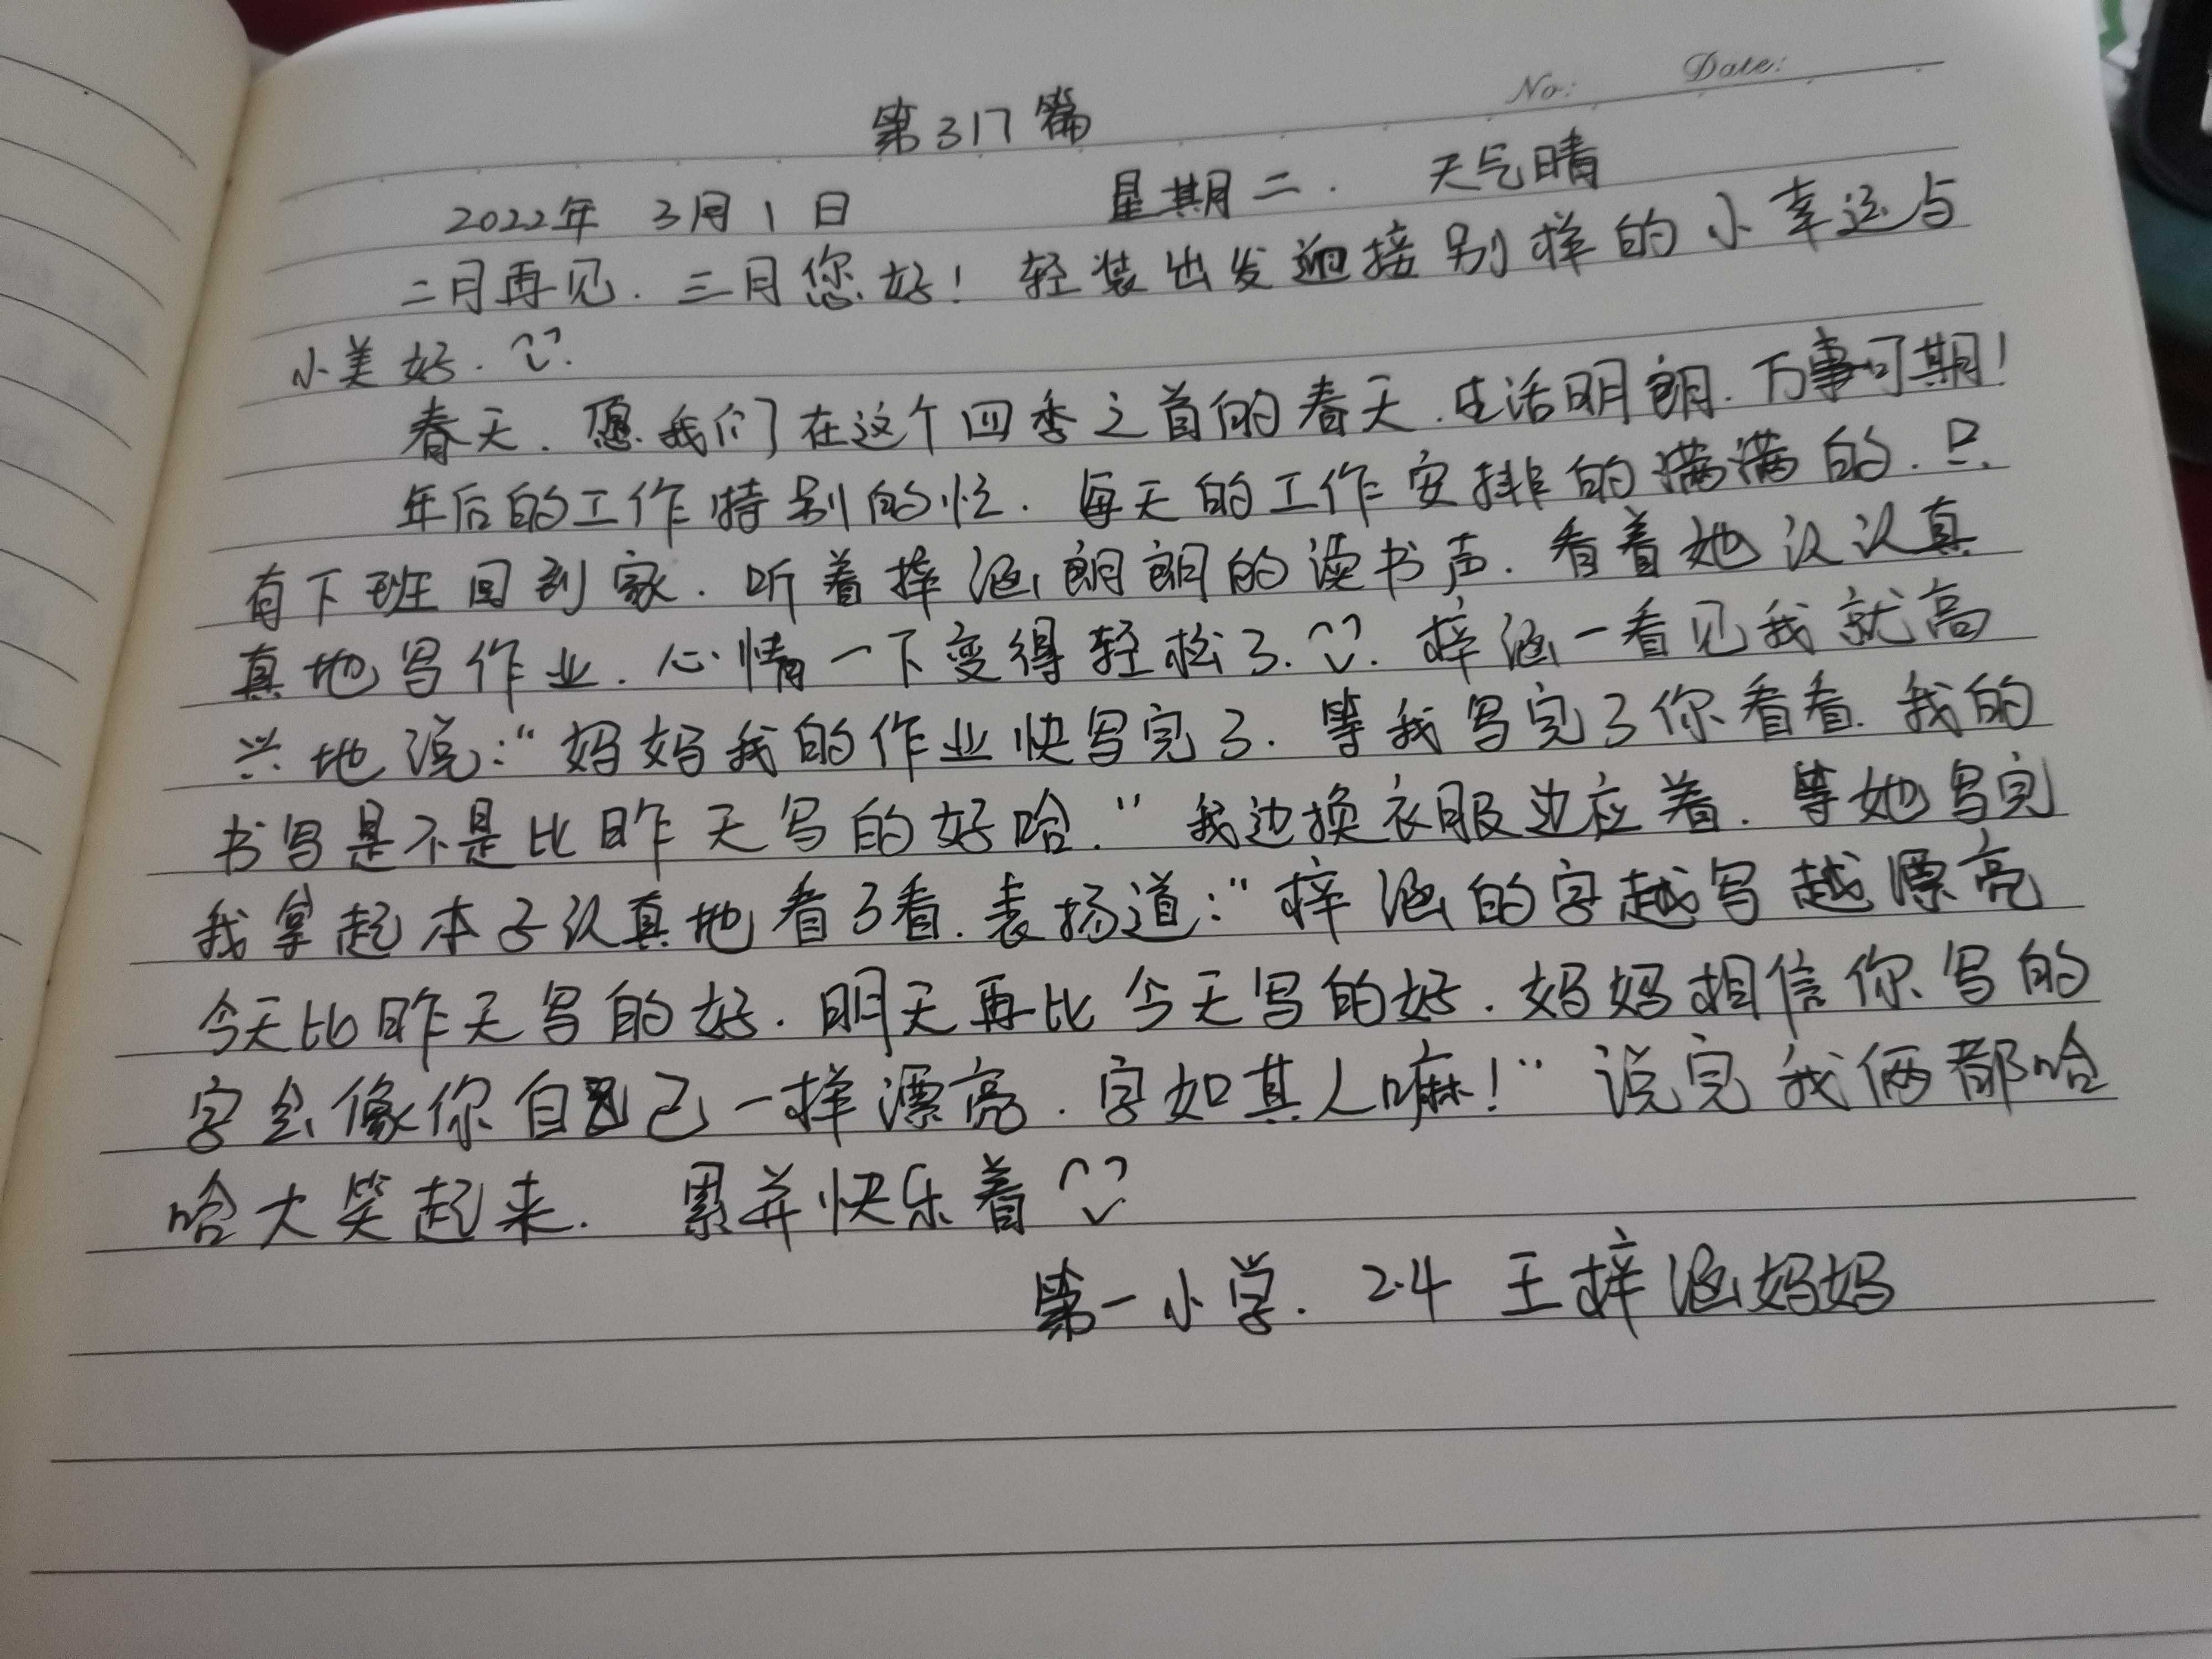 No:   Date:
第317篇
2022年 3月1日 星期二. 天气晴
二月再见.三月您好！轻装出发迎接别样的小幸运与
小美好.
春天.愿我们在这个四季之首的春天.生活明朗.万事可期！
年后的工作特别的忙.每天的工作安排的满满的.只
有下班回到家.听着梓涵朗朗的读书声.看着她认认真
真地写作业.心情一下变得轻松了.梓涵一看见我就高
兴地说:“妈妈我的作业快写完了.等我写完了你看看.我的
书写是不是比昨天写的好哈.”我边换衣服边应着.等她写完
我拿起本子认真地看了看.表扬道:“梓涵的字越写越漂亮
今天比昨天写的好.明天再比今天写的好.妈妈相信你写的
字会像你自己一样漂亮.字如其人嘛！”说完我俩都哈
哈大笑起来. 累并快乐着
第一小学. 2.4 王梓涵妈妈